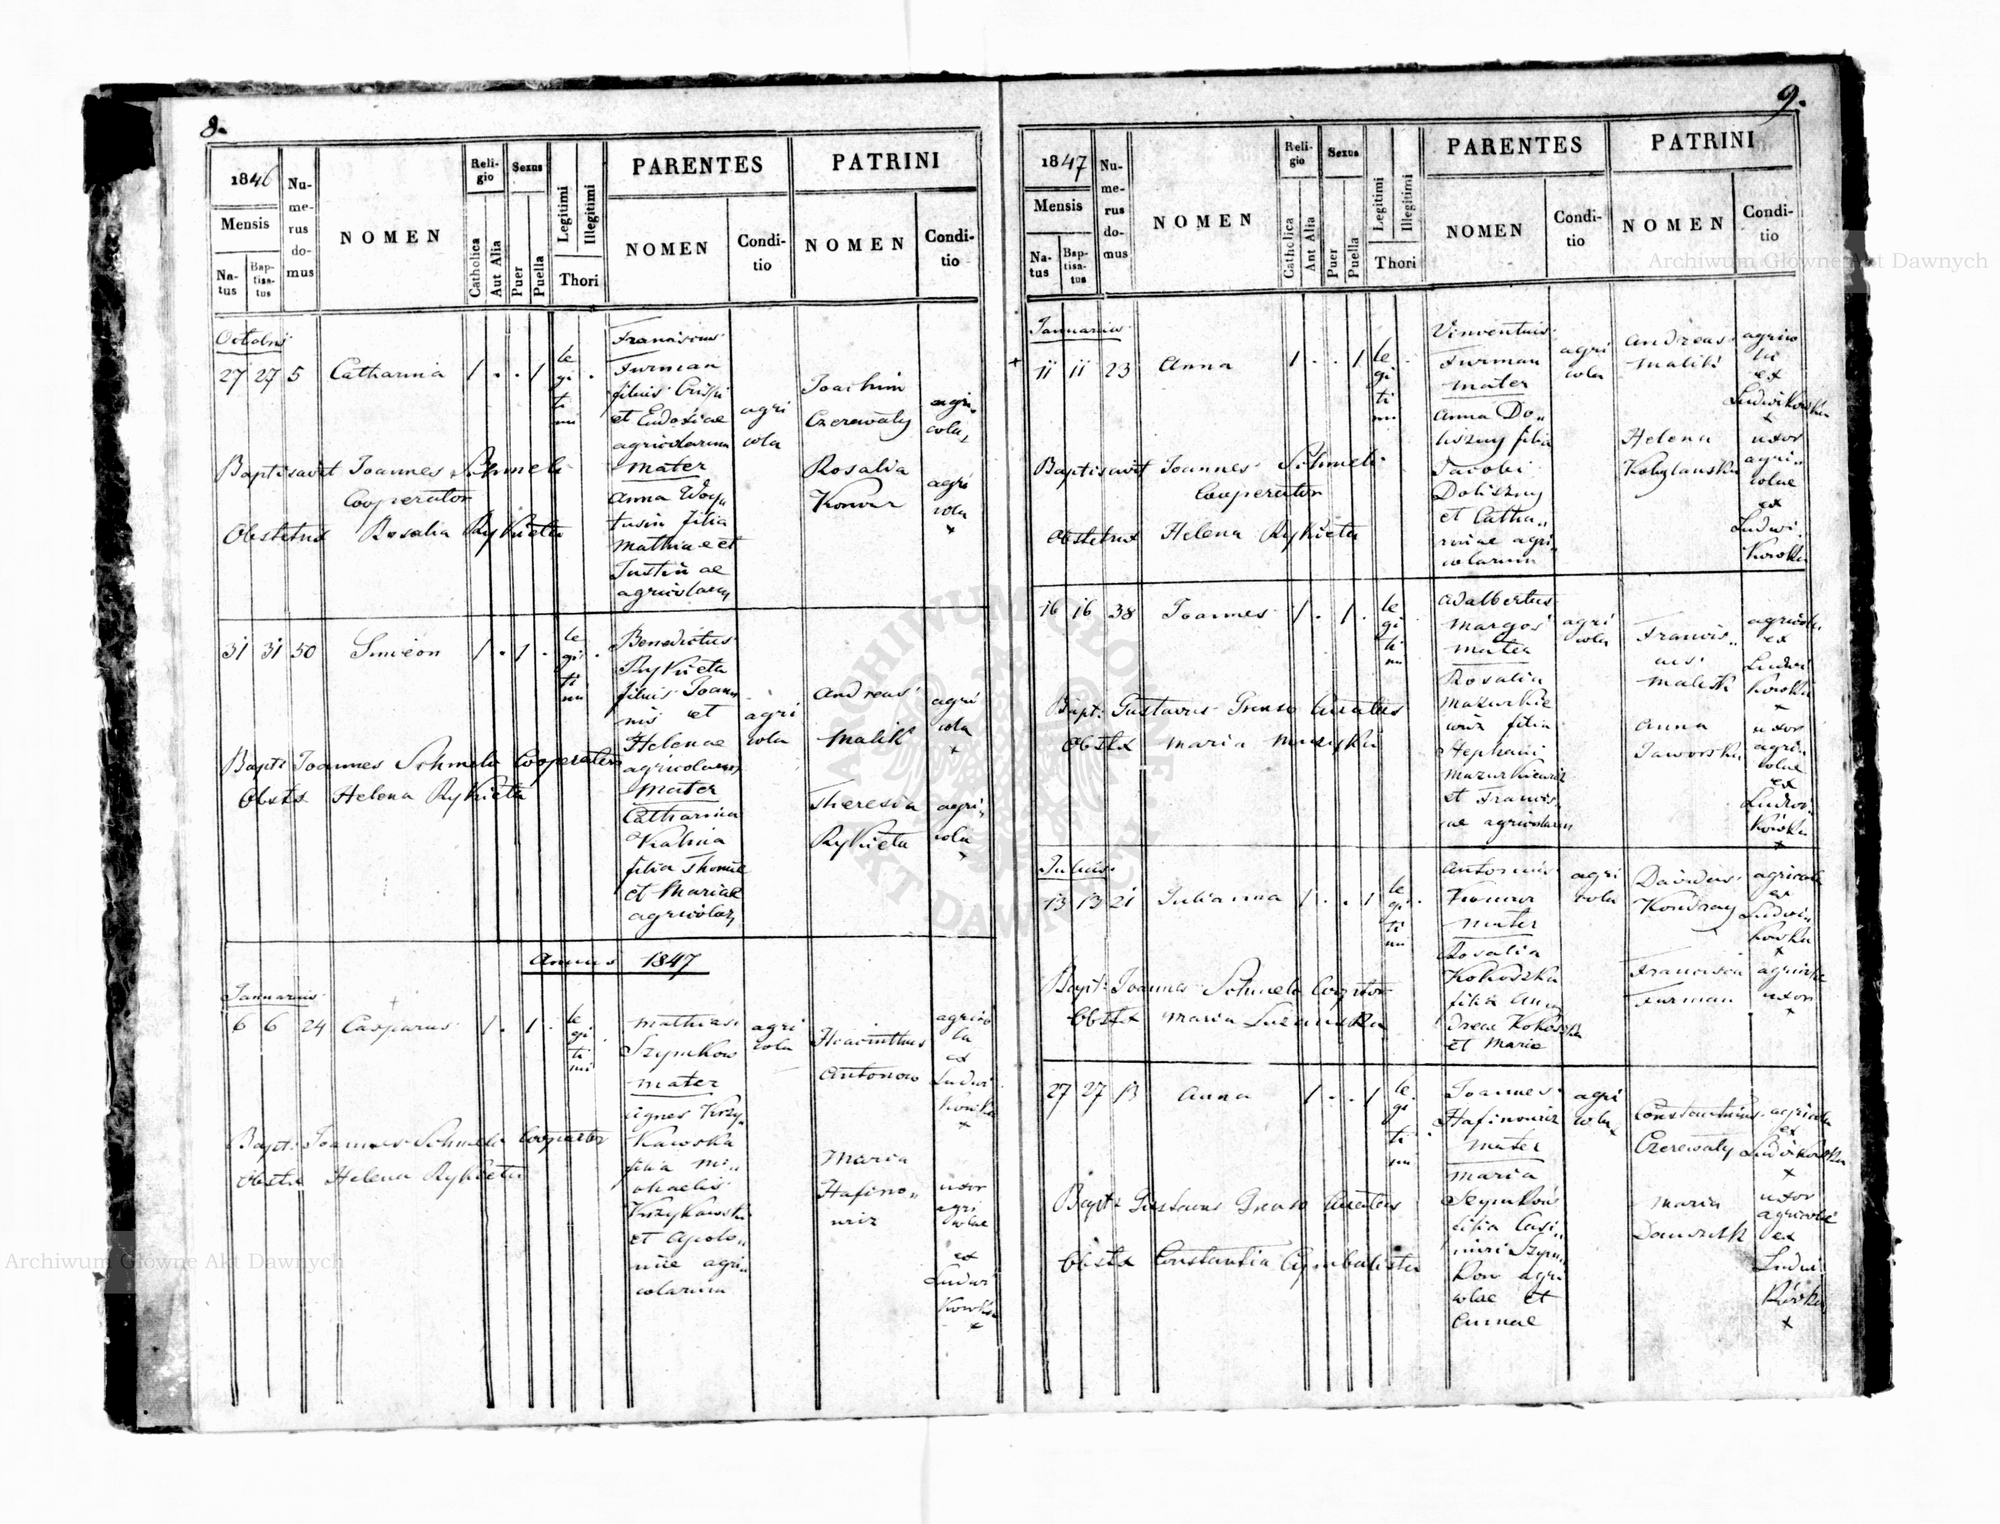 8.
1846
Mensis
Natus
Baptisatus
Numerus domus
NOMEN
Religio
Catholica
Aut Alia
Sexus
Puer
Puella
Legitimi
Illegitimi
Thori
PARENTES
NOMEN
Conditio
PATRINI
NOMEN
Conditio
Octobris
27 27 5 Catharina 1 . . 1
le
gi
ti
mi
Franciscus
Furman
filius Crispi
et Eudosiae
agricolarum
Mater
Anna Woy„
tusin filia
Mathiae et
Justin ae
agricolarum
agri
cola
Joachim
Czerewaty
Rosalia
Konwur
agri„
cola,
agri
cola
+
Baptisavit Joannes Schmelo
Cooperator
Obstetrix Rosalia Rykieta
31 31 50 Simeon 1 . 1 .
le
gi
ti
mi
Benedictus
Rykieta
filius Joan
nis et
Helenae
agricolarum
Mater
Catharina
Kalinia
filia Thomae
et Mariae
agricolar
agri
cola
Andreas
Malik
Theresia
Rykieta
agri
cola
+
agri„
cola
+
Bapt: Joannes Schmelo Cooperator
Obstx Helena Rykieta
Annus 1847
Januarius
6 6 24 Casparus 1 . 1 .
le
gi
ti
mi
Mathias
Szymkow
Mater
Agnes Krzy„
kawska
filia Mi„
chaelis
Krzykawski
et Apolo„
niae agri„
colarum
agri
cola
Hiacinthus
Antonow
Maria
Hafino„
wicz
agrico
la
ex
Ludwi
kowka
+
uxor
agri
colae
ex
Ludwi
kowka
+
Bapt: Joannes Schmelo Cooperator
Obstx Helena Rykieta
9.
1847
Mensis
Natus
Baptisatus
Numerus domus
NOMEN
Religio
Catholica
Ant Alia
Sexus
Puer
Puella
Legitimi
Illegitimi
Thori
PARENTES
NOMEN
Conditio
PATRINI
NOMEN
Conditio
Januarius
+ 11 11 23 Anna 1 . . 1
le
gi
ti
mi
Vincentius
Furman
Mater
Anna Do„
liszny filia
Jacobi
Doliszny
et Catha„
rinae agri„
colarum
agri
cola
Andreas
Malik
Helena
Kobylanska
agrico
la
ex
Ludwikowka
+
uxor
agri„
colae
ex
Ludwi„
kowka
Baptisavit Joannes Schmelo
Cooperator
Obstetrix Helena Rykieta
16 16 38 Joannes 1 . 1 .
le
gi
ti
mi
Adalbertus
Margos
Mater
Rosalia
Mazurkie
wicz filia
Stephani
Mazurkiewicz
et Francis„
cae agricolarum
agri
cola
Francis„
cus
Malik
Anna
Jaworska
agricola
ex
Ludwi
kowka
+
uxor
agri„
colae
ex
Ludwi„
kowka
+
Bapt: Gustavus Grenso Curatus
Obstx Maria Muzyka
Julius
13 13 21 Julianna 1 . . 1
le
gi
ti
mi
Antonius
Konwur
Mater
Rosalia
Kokoszka
filia An„
dreae Kokoszka
et Marie
agri
cola
Davidus
Kondray
Francisca
Furman
agricola
ex
Ludwi„
kowka
+
agricolae
uxor
+
Bapt: Joannes Schmelo Cooptor
Obstx Maria Luzanska
27 27 13 Anna 1 . . 1
le
gi
ti
mi
Joannes
Hafinowicz
Mater
Maria
Szymkow
filia Casi„
miri Szym„
kow agri
colae et
Annae
agri
cola
Constantinus
Czerewaty
Maria
agricola
ex
Ludwikowka
+
uxor
agricolae
ex
Ludwi
kowka
+
Bapt: Gustavus Grenso Curatus
Obstx Constantia Cymbalista
Archiwum Główne Akt Dawnych
Archiwum Główne Akt Dawnych
ARCHIWUM GŁÓWNE
AKT DAWNYCH